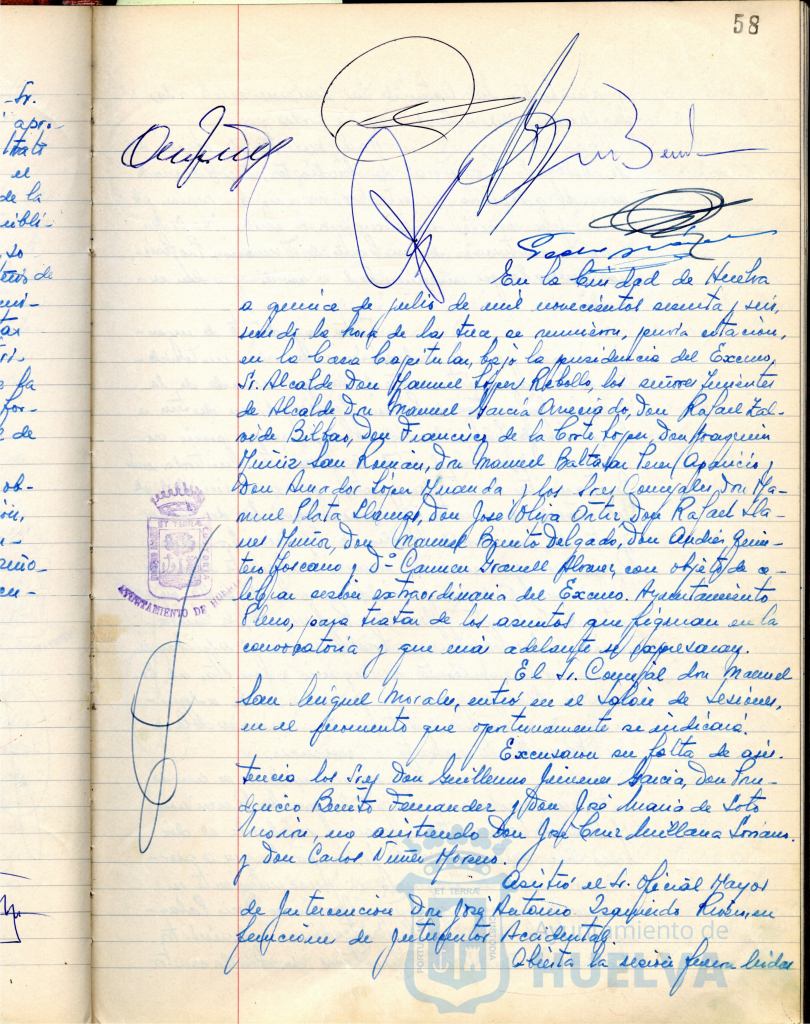 58
En la Ciudad de Huelva
a quince de julio de mil novecientos sesenta y seis,
siendo la hora de las trece, se reunieron, previa citación,
en la Casa Capitular, bajo la presidencia del Excmo.
Sr. Alcalde Don Manuel López Rebollo, los señores Tenientes
de Alcalde Don Manuel García Don Rafael Zal-
vide Bilbao, Don Francisco de la Corte López, Don Joaquin
Muñiz San Román, Don Manuel Baltasar Pérez Aparicio y
Don Amador López Miranda y los Sres Concejales Don Ma-
nuel Plata Llamas, Don José Oliva Ortiz, Don Rafael Lla-
nes Muñoz, Don Manuel Benito Delgado, Don Andrés Quin-
tero Toscano y Dª Carmen Granell Alvarez, con objeto de ce-
lebrar sesión extraordinaria del Excmo. Ayuntamiento
Pleno, para tratar de los asuntos que figuran en la
convocatoria y que más adelante se expresaran.
El Sr. Concejal don Manuel
San Miguel Morales, entró en el Salón de Sesiones,
en el momento que oportunamente se indicará.
Excusaron su falta de asis-
tencia los Sres Don Guillermo Jimenez García, Don
Benito Fernandez y Don José María de Soto
Morón, no asistiendo Don José Cruz Soriano
y Don Carlos Núñez Moreno.
Asistió el Sr. Oficial Mayor
de Intervención Don José Antonio Izquierdo en
funciones de Interventor Accidental.
Abierta la sesión fueron leidas
AYUNTAMIENTO DE HUELVA
Ayuntamiento de
HUELVA